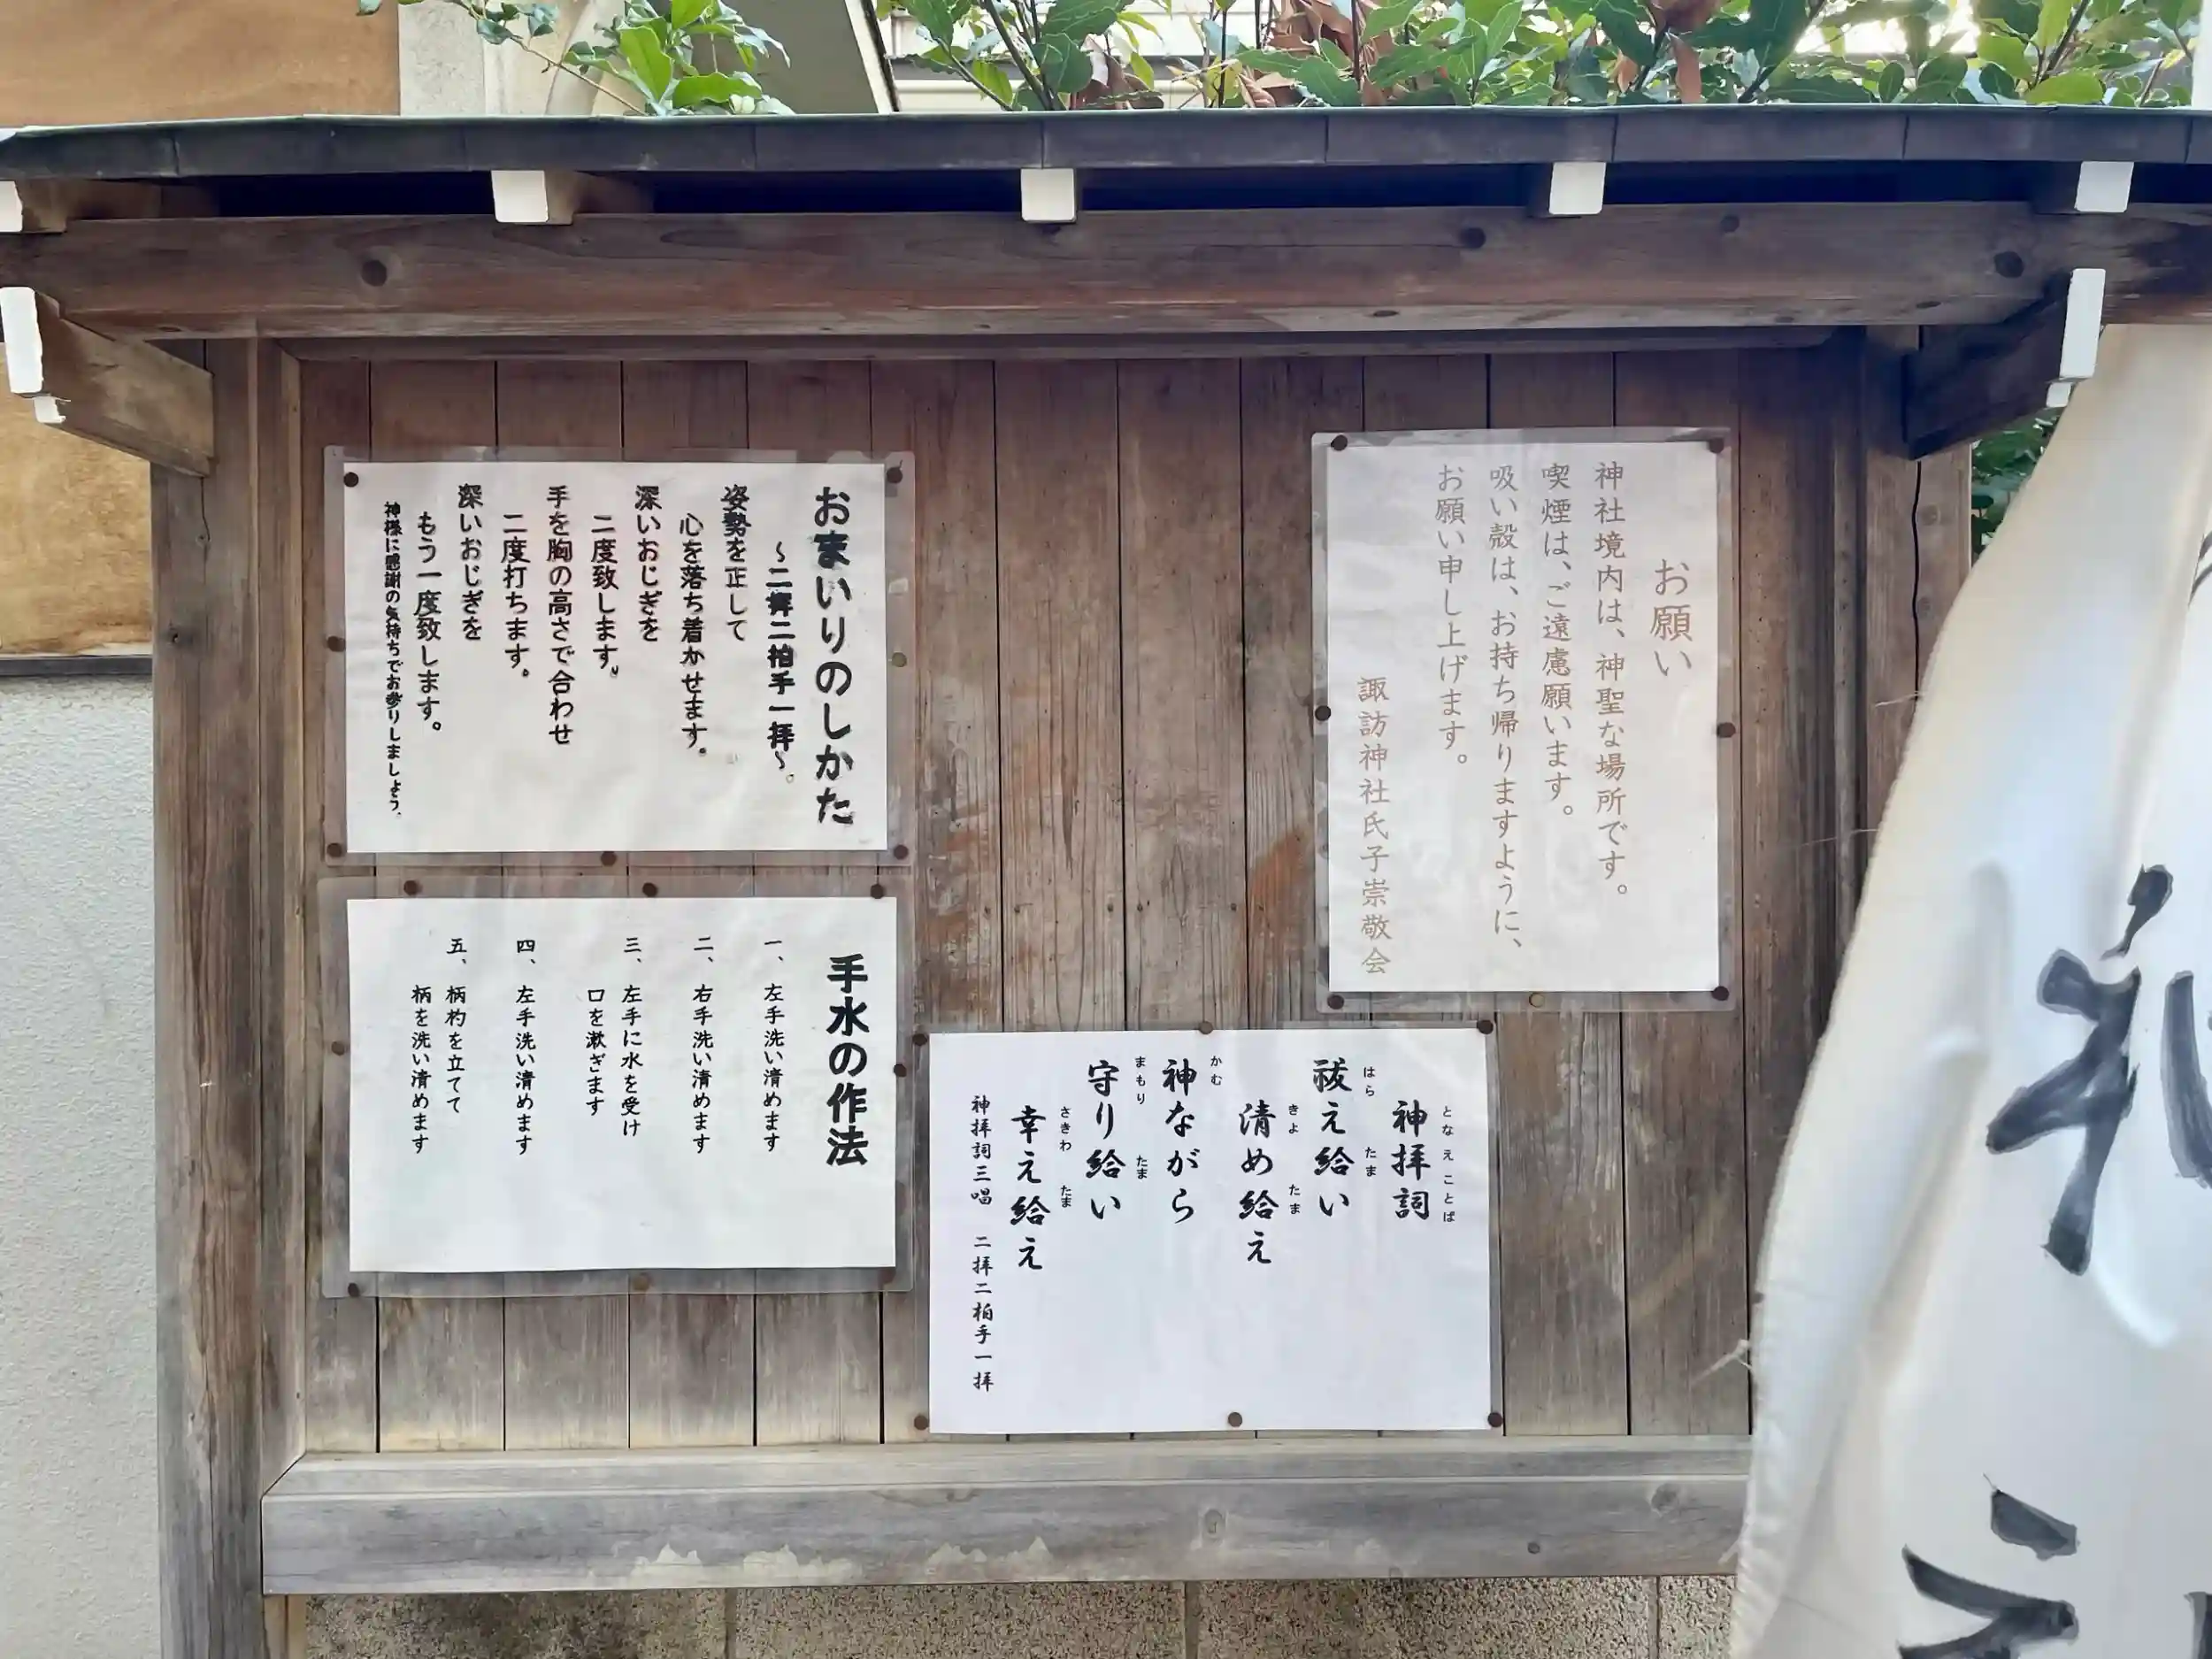 おまいりのしかた
～二拝二拍手一拝～。
姿勢を正して
心を落ち着かせます。
深いおじぎを
二度致します。
手を胸の高さで合わせ
二度打ちます。
深いおじぎを
もう一度致します。
神様に感謝の気持ちでお参りしましょう。
お願い
神社境内は、神聖な場所です。
喫煙は、ご遠慮願います。
吸い殻は、お持ち帰りますように、
お願い申し上げます。
諏訪神社氏子崇敬会
手水の作法
一、左手洗い清めます
二、右手洗い清めます
三、左手に水を受け
口を漱ぎます
四、左手洗い清めます
五、柄杓を立てて
柄を洗い清めます
となえことば
神拝詞
はら たま
祓え給い
きよ たま
清め給え
かむ
神ながら
まもり たま
守り給い
さきわ たま
幸え給え
神拝詞三唱 二拝二柏手一拝
礼